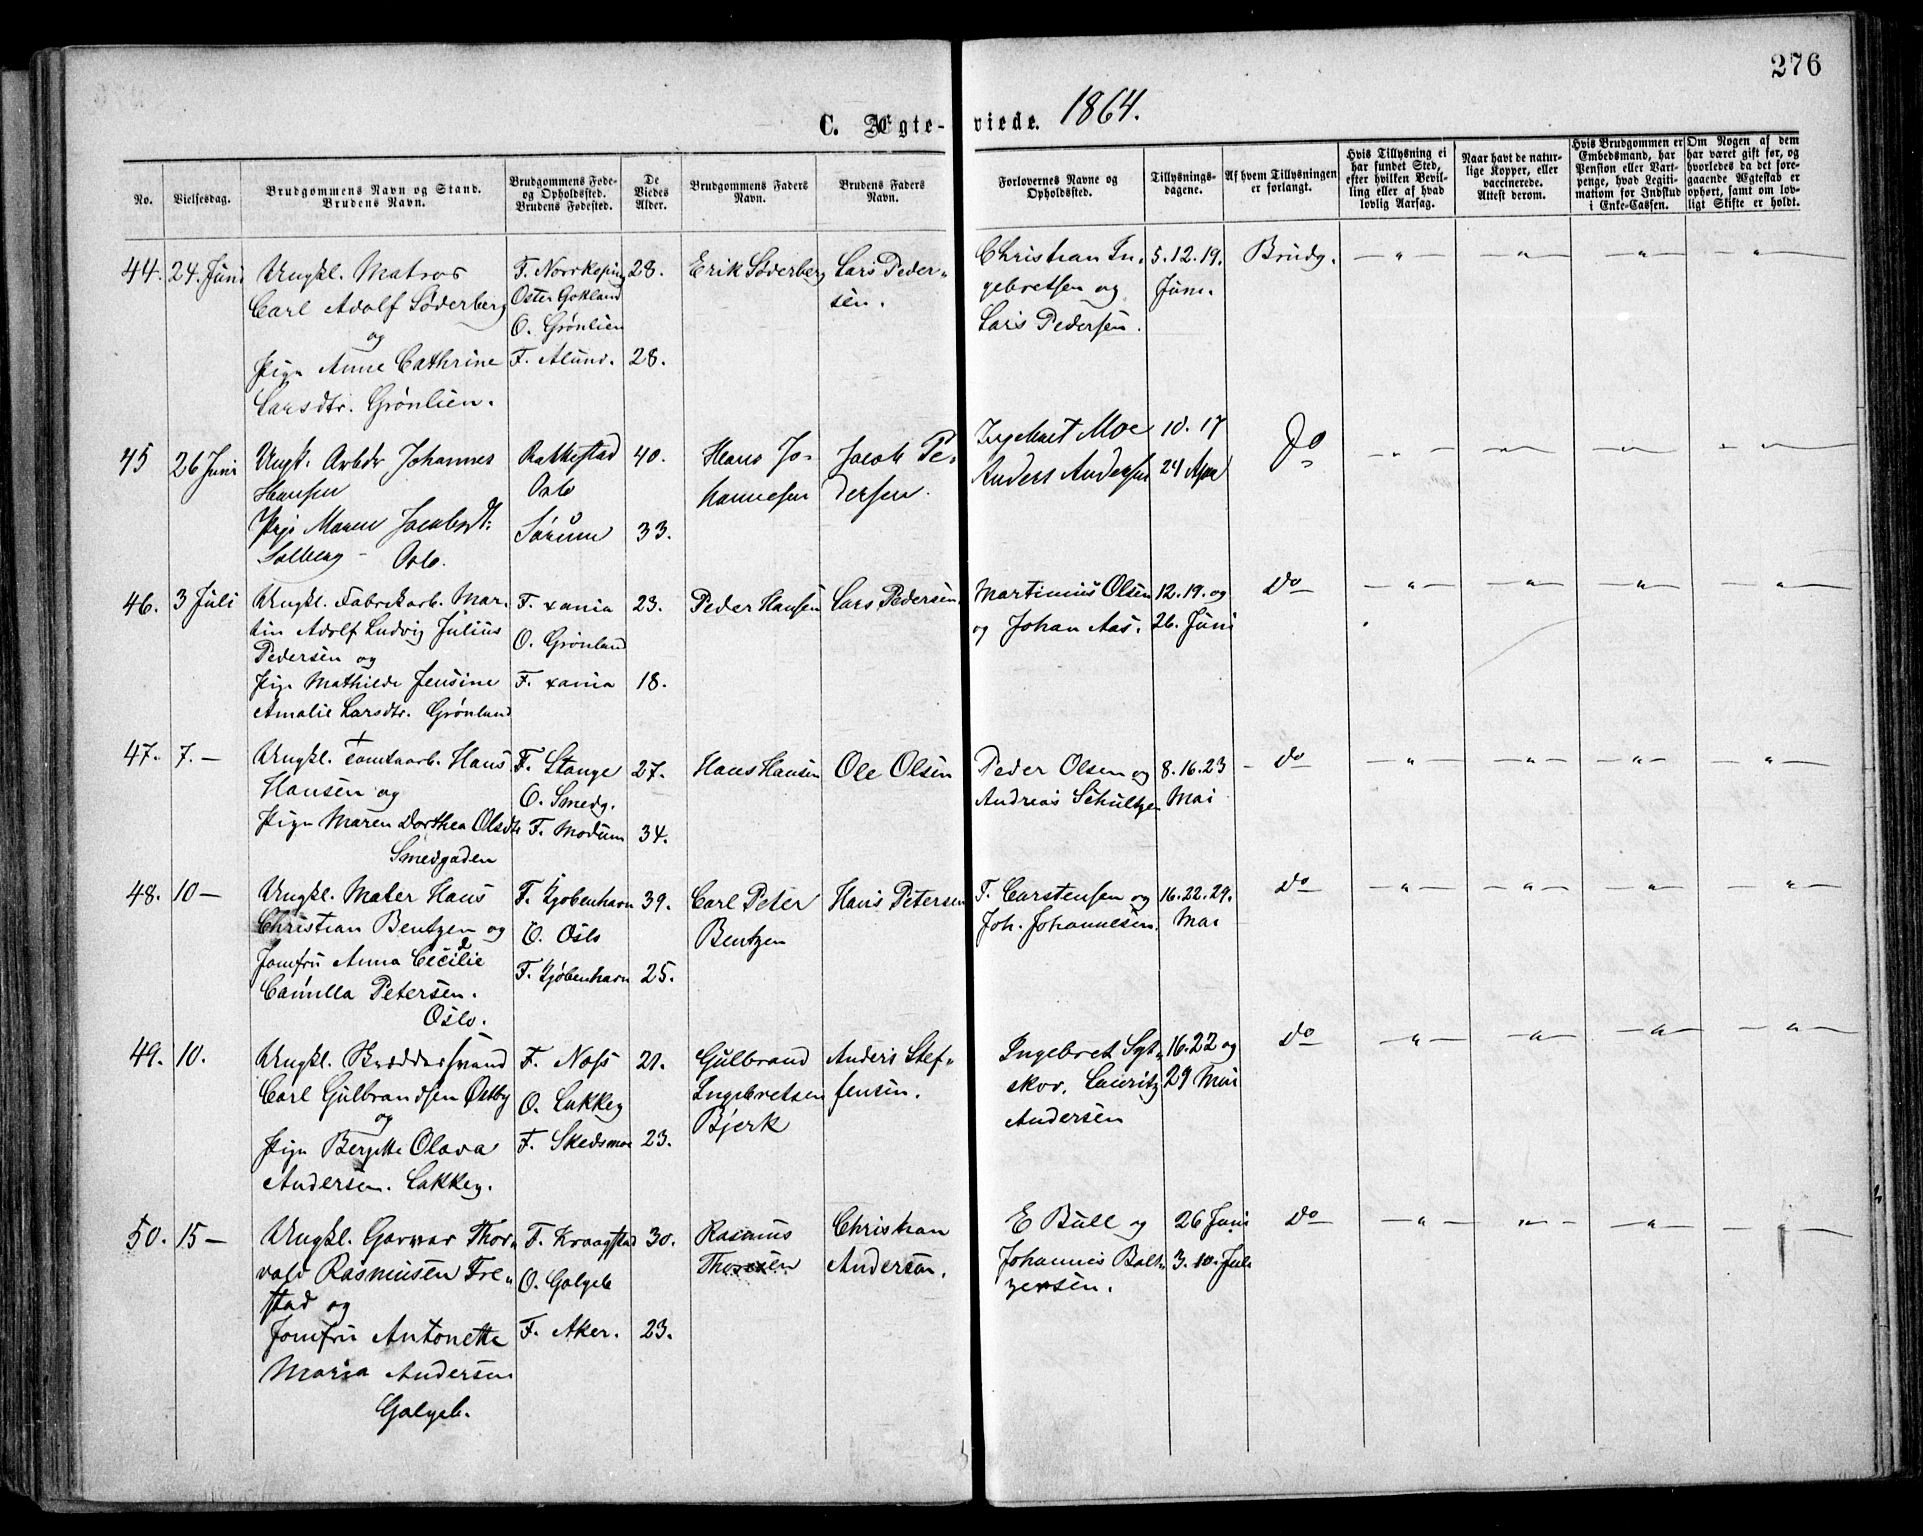 276
C. Ægte-viede. 1864.
No.
Vielsesdag.
Brudgommens Navn og Stand.
Brudens Navn.
Brudgommens Føde-
og Opholdssted.
Brudens Fødested.
De
Viedes
Alder.
Brudgommens Faders
Navn.
Brudens Faders
Navn.
Forlovernes Navne og
Opholdssted.
Tillysnings-
dagene.
Af hvem Tillysningen
er forlangt.
Hvis Tillysning ei
har fundet Sted,
efter hvilken Bevil-
ling eller af hvad
lovlig Aarsag.
Naar havt de natur-
lige Kopper, eller
vaccinerede.
Attest derom.
Hvis Brudgommen er
Embedsmand, har
Pension eller Vart-
penge, hvad Legiti-
mation for Indskud
i Enke-Cassen.
Om Nogen af dem
har været gift før, og
hvorledes da det fore-
gaaende Ægteskab er
ophørt, samt om lov-
ligt Skifte er holdt.
44. 24. Juni
Ungkl. Matros
Carl Adolf Söderberg
og
Pige Anne Cathrine
Larsdtr. Grønlien.
F. Norrkoping
Oster Gotland
O. Grönlien
F. Alund.
28.
28.
Erik Söderberg
Lars Peder-
sen.
Christian In-
gebretsen og
Lars Pedersen.
5. 12. 19.
Juni.
Brudg. — " — — " — — " — — " —
45 26 Juni
Ungk. Arbdr Johannes
Hansen
Pige Maren Jacobsdt:
Solberg - Oslo.
Rakkestad
Oslo
Sørum
40.
33.
Hans Jo-
hannesen
Jacob Pe-
dersen.
Ingebret Moe
Anders Andersen
10. 17
24 Apr
Do — " — — " — — " — — " —
46. 3 Juli
Ungkl. Fabrikarb. Mar-
tin Adolf Ludvig Julius
Pedersen og
Pige Mathilde Jensine
Amalie Larsdtr. Grönland
F. xania
O. Grönland
F. xania
23.
18.
Peder Hansen
Lars Pedersen.
Martinius Olsen
og Johan Aas.
12. 19. og
26. Juni
Do — " — — " — — " — — " —
47. 7. —
Ungkl. Tomtearb. Hans
Hansen og
Pige Maren Dorthea Olsdtr
Smedgaden
F. Stange
O. Smedg.
F. Modum
27.
34.
Hans Hansen
Ole Olsen
Peder Olsen og
Andreas Schultzen
8. 16. 23
Mai
- Do — " — — " — — " — — " —
48. 10 —
Ungkl. Maler Hans
Christian Bentzen og
Jomfru Anna Cecilie
Camilla Petersen.
Oslo.
F. Kjøbenhavn
O. Oslo
F. Kjøbenhavn
39.
25.
Carl Peter
Bentzen
Hans Petersen
F. Carstensen og
Joh. Johannesen.
16. 22. 29.
Mai
Do — " — — " — — " — — " —
49. 10.
Ungkl.
Carl Gulbrandsen Østby
og
Pige Bergitte Olava
Andersen. Lakkeg.
F. Næs
O. Lakkeg
F. Skedsmoe
21.
23.
Gulbrand
Ingebretsen
Bjerk
Anders Stef-
fensen.
Ingebret
skov. Lauritz
Andersen
16. 22 og
29 Mai
Do — " — — " — — " — — " —
50. 15 —
Ungkl. Gunvar Thor-
vald Rasmusen Fre-
stad og
Jomfru Antonette
Maria Andersen
Galgeb.
F. Kraagstad
O. Galgeb
F. Aker.
30.
23.
Rasmus
Christian
Andersen.
E Bull og
Johannes Balt-
zersen.
26 Juni
3. 10. Juli
Do — " — — " — — " — — " —